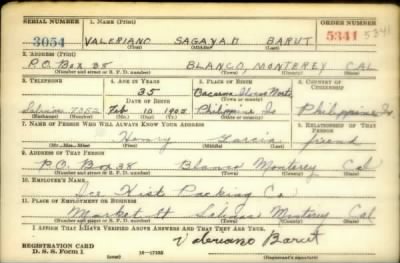 SERIAL NUMBER 1. NAME (Print) ORDER NUMBER
3054 VALERIANO SAGAYAD BARUT 5341 5341
(First) (Middle) (Last)
2. ADDRESS (Print)
P.O. Box 38 BLANCO, MONTEREY CAL
(Number and street or R. F. D. number) (Town) (County) (State)
3. TELEPHONE 4. AGE IN YEARS 5. PLACE OF BIRTH 6. COUNTRY OF CITIZENSHIP
35 Bacarra Ilocos Norte
DATE OF BIRTH (Town or county)
Salinas Feb 10 1905 Philippine Is Philippine Is
(Exchange) (Number) (Mo.) (Day) (Yr.) (State or country)
7. NAME OF PERSON WHO WILL ALWAYS KNOW YOUR ADDRESS 8. RELATIONSHIP OF THAT PERSON
Henry Garcia friend
(Mr., Mrs., Miss) (First) (Middle) (Last)
9. ADDRESS OF THAT PERSON
P.O. Box 38 Blanco Monterey Cal
(Number and street or R. F. D. number) (Town) (County) (State)
10. EMPLOYER'S NAME
Ice Kist Packing Co
11. PLACE OF EMPLOYMENT OR BUSINESS
Market St Salinas Monterey Cal
(Number and street or R. F. D. number) (Town) (County) (State)
I AFFIRM THAT I HAVE VERIFIED ABOVE ANSWERS AND THAT THEY ARE TRUE.
REGISTRATION CARD Valeriano Barut
D. S. S. Form 1 (over) 16-17105 (Registrant's signature)